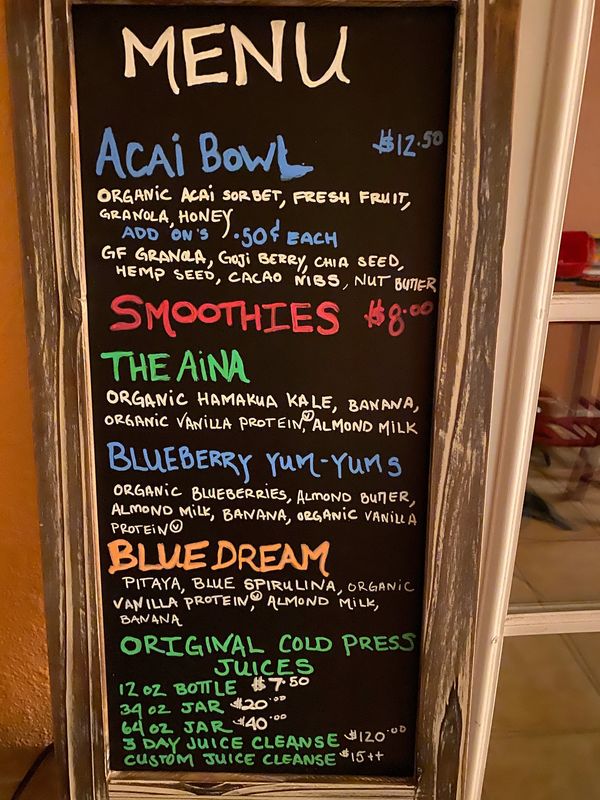 MENU
ACAI BOWL $12.50
ORGANIC ACAI SORBET, FRESH FRUIT,
GRANOLA, HONEY
ADD ON'S .50¢ EACH
GF GRANOLA, GOJI BERRY, CHIA SEED,
HEMP SEED, CACAO NIBS, NUT BUTTER
SMOOTHIES $8.00
THE AINA
ORGANIC HAMAKUA KALE, BANANA,
ORGANIC VANILLA PROTEIN Ⓥ, ALMOND MILK
BLUEBERRY YUM-YUMS
ORGANIC BLUEBERRIES, ALMOND BUTTER,
ALMOND MILK, BANANA, ORGANIC VANILLA
PROTEIN Ⓥ
BLUE DREAM
PITAYA, BLUE SPIRULINA, ORGANIC
VANILLA PROTEIN Ⓥ, ALMOND MILK,
BANANA
ORIGINAL COLD PRESS
JUICES
12 OZ BOTTLE $7.50
34 OZ JAR $20.00
64 OZ JAR $40.00
3 DAY JUICE CLEANSE $120.00
CUSTOM JUICE CLEANSE $15++